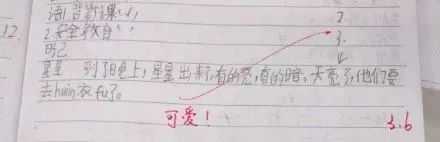 12.
语1.背新课(1)
2.安全教育
日记
星星 到了晚上，星星出来了，有的亮，有的暗。天亮了，他们要
去huàn衣fu了。
可爱！
3.6